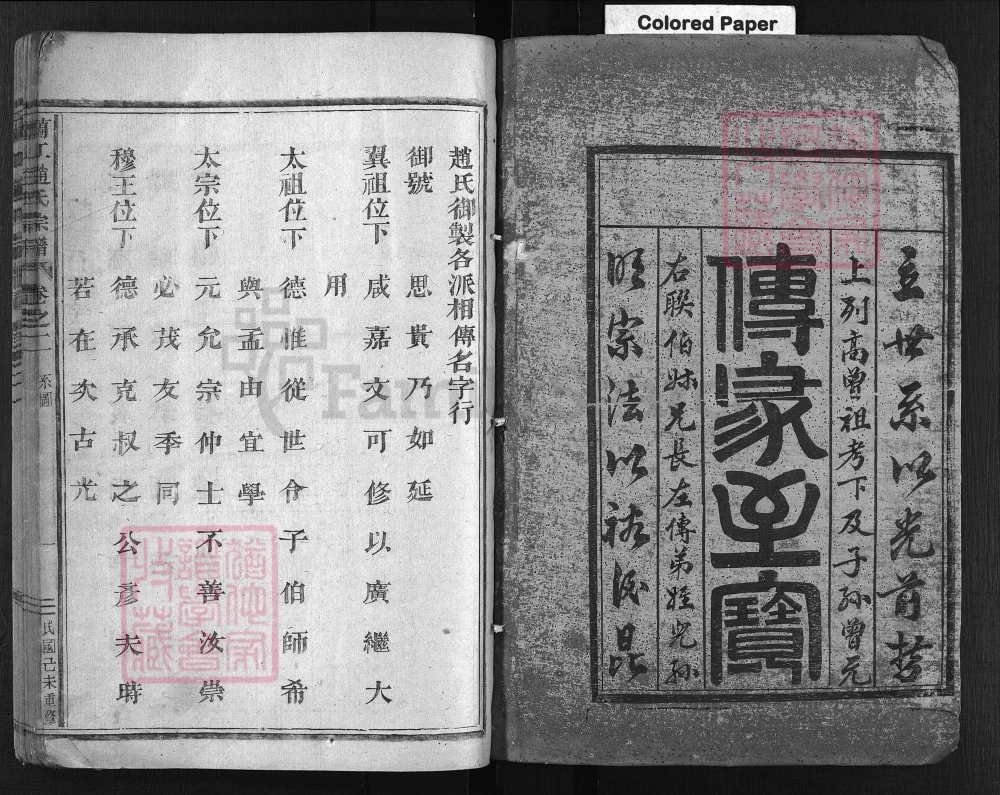 Colored Paper
立世系以光前哲
上列高曾祖考下及子孫曾元
傳家至寶
右聯伯姊兄長左傳弟姪兒孫
明宗法以裕後昆
趙氏御製各派相傳名字行
御號 思貴乃如延
翼祖位下 咸嘉文可修以廣繼大
用
太祖位下 德惟從世令子伯師希
與孟由宜學
太宗位下 元允宗仲士不善汝崇
必茂友季同
穆王位下 德承克叔之公彥夫時
若在次古光
蘭江趙氏宗譜 卷之二 系圖 一 民國己未重修